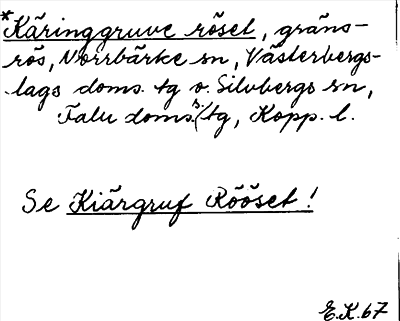 *Käringgruve röset, gräns-
rös, Norrbärke sn, Västerbergs-
lags doms. tg o. Silvbergs sn,
Falu doms. s. tg, Kopp. l.
Se Kiärgruf Rööset!
E.K.67